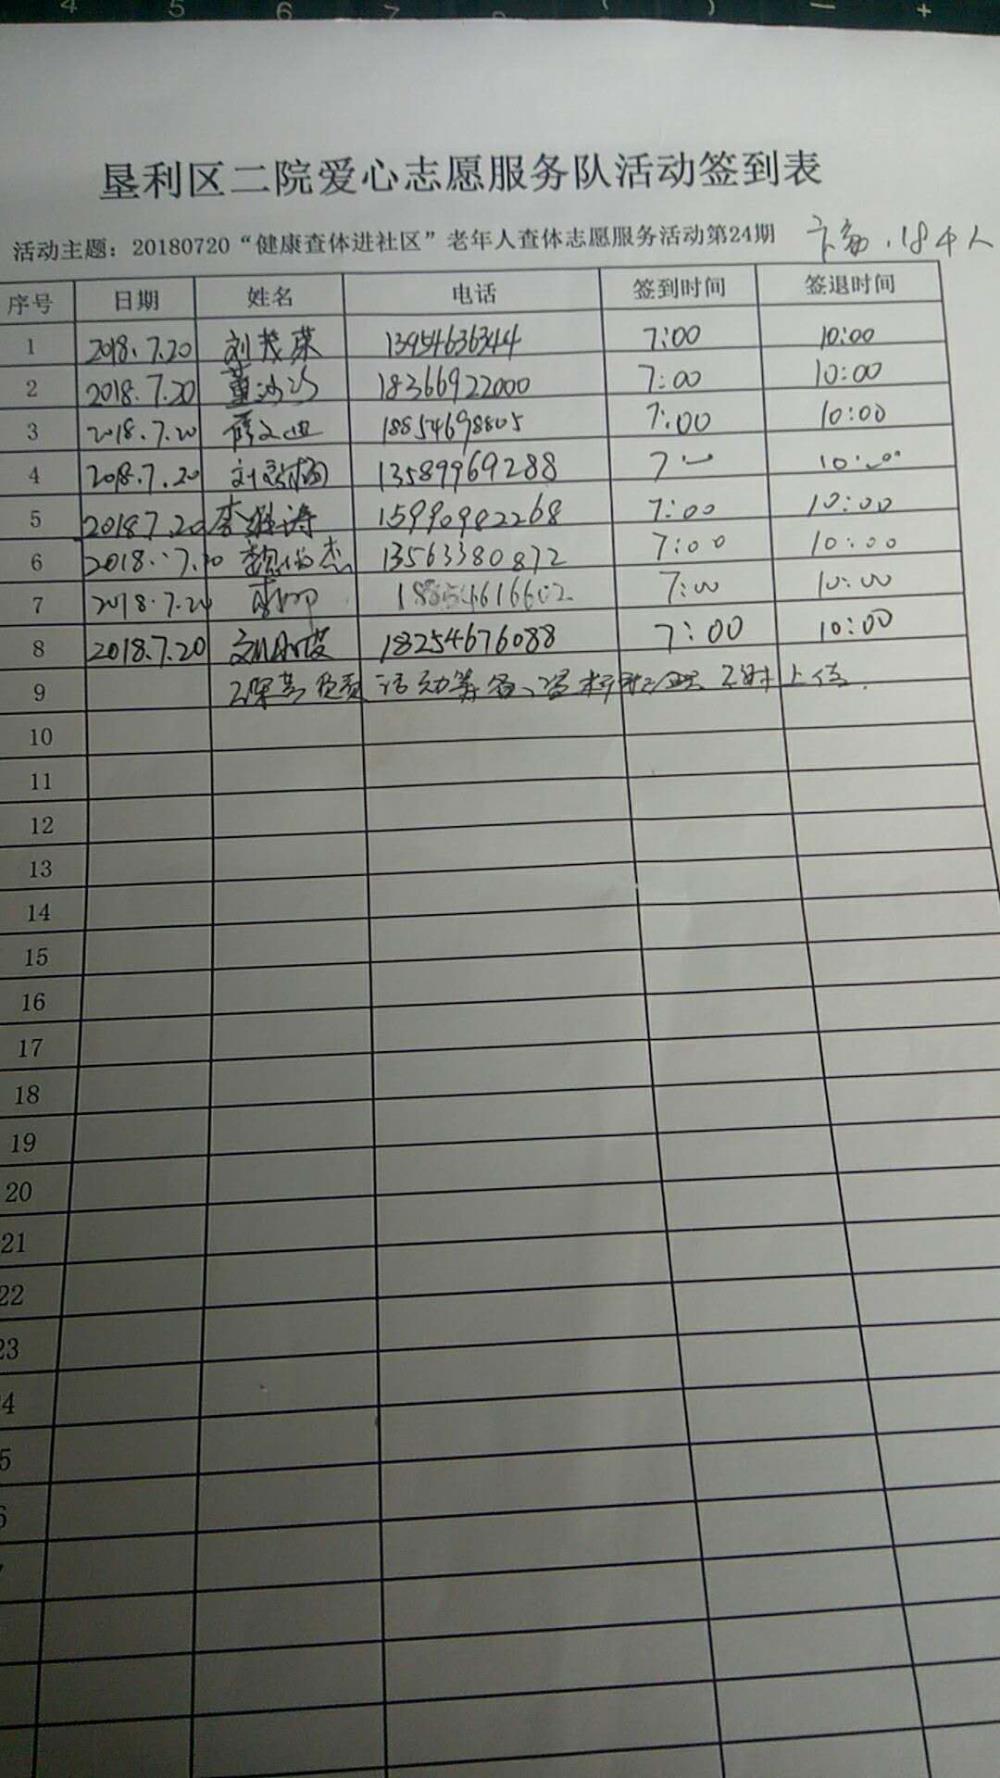 垦利区二院爱心志愿服务队活动签到表
活动主题：20180720“健康查体进社区”老年人查体志愿服务活动第24期 184人
序号 日期 姓名 电话 签到时间 签退时间
1 2018.7.20 刘茂荣 13954636344 7:00 10:00
2 2018.7.20 董 18366922000 7:00 10:00
3 2018.7.20 薛文 18854698805 7:00 10:00
4 2018.7.20 刘 13589969288 7 10:00
5 2018 7.20 李 涛 15990982268 7:00 10:00
6 2018.7.20 魏 杰 13563380872 7:00 10:00
7 2018.7.20 7:00 10:00
8 2018.7.20 18254676088 7:00 10:00
9 负责 活动筹备、资料 上传.
10
11
12
13
14
15
16
17
18
19
20
21
22
23
4
5